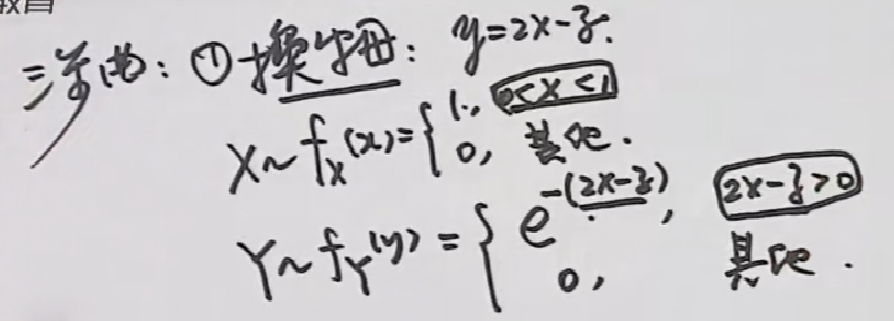 教育
三步曲：①换字母：y=2x-z.
X~f_X(x)={1, 0<x<1
0, 其他.
Y~f_Y(y)={e^{-(2x-z)}, 2x-z>0
0, 其他.